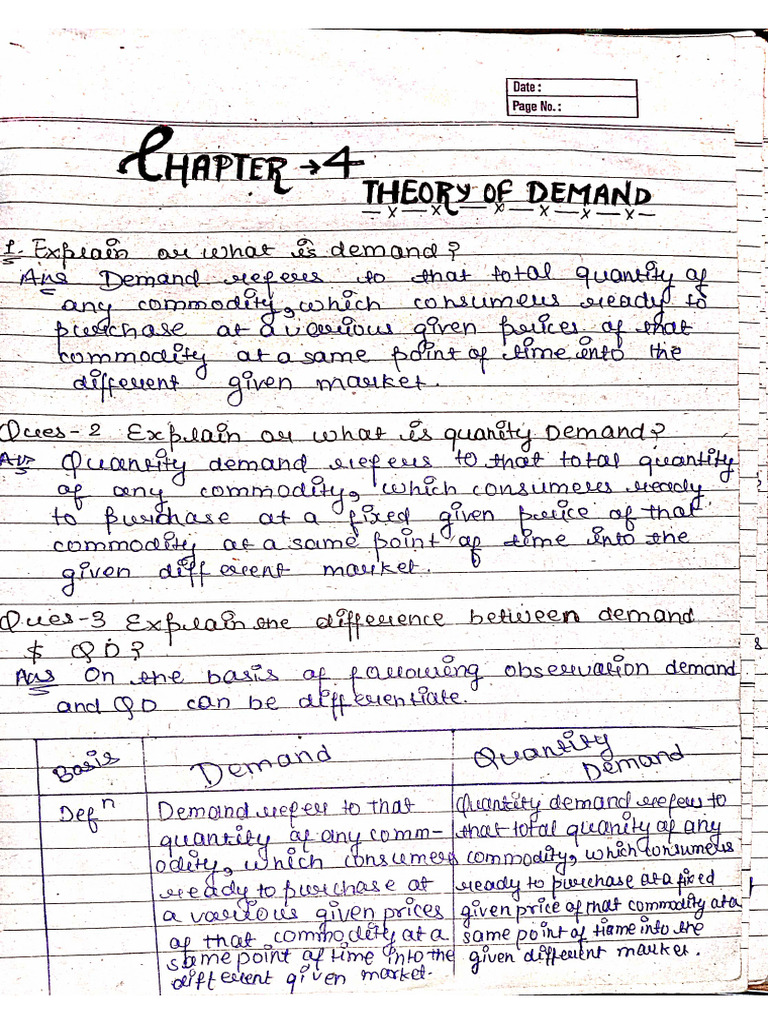 Date :
Page No. :
CHAPTER → 4
THEORY OF DEMAND
1. Explain or what is demand?
Ans Demand refers to that total quantity of
any commodity, which consumers ready to
purchase at a various given prices of that
commodity at a same point of time into the
different given market.
Ques-2 Explain or what is quanity Demand?
Ans Quantity demand refers to that total quantity
of any commodity, which consumers ready
to purchase at a fixed given price of that
commodity at a same point of time into the
given different market.
Ques-3 Explain the difference between demand
$ QD?
Ans On the basis of following observation demand
and QD can be differentiate.
Basis Demand Quantity
Demand
Defⁿ Demand refers to that
quantity of any comm-
odity, which consumers
ready to purchase at
a various given prices
of that commodity at a
same point of time into the
different given market.
Quantity demand refers to
that total quanity of any
commodity, which consumers
ready to purchase at a fixed
given price of that commodity at a
same point of tiame into the
given different market.